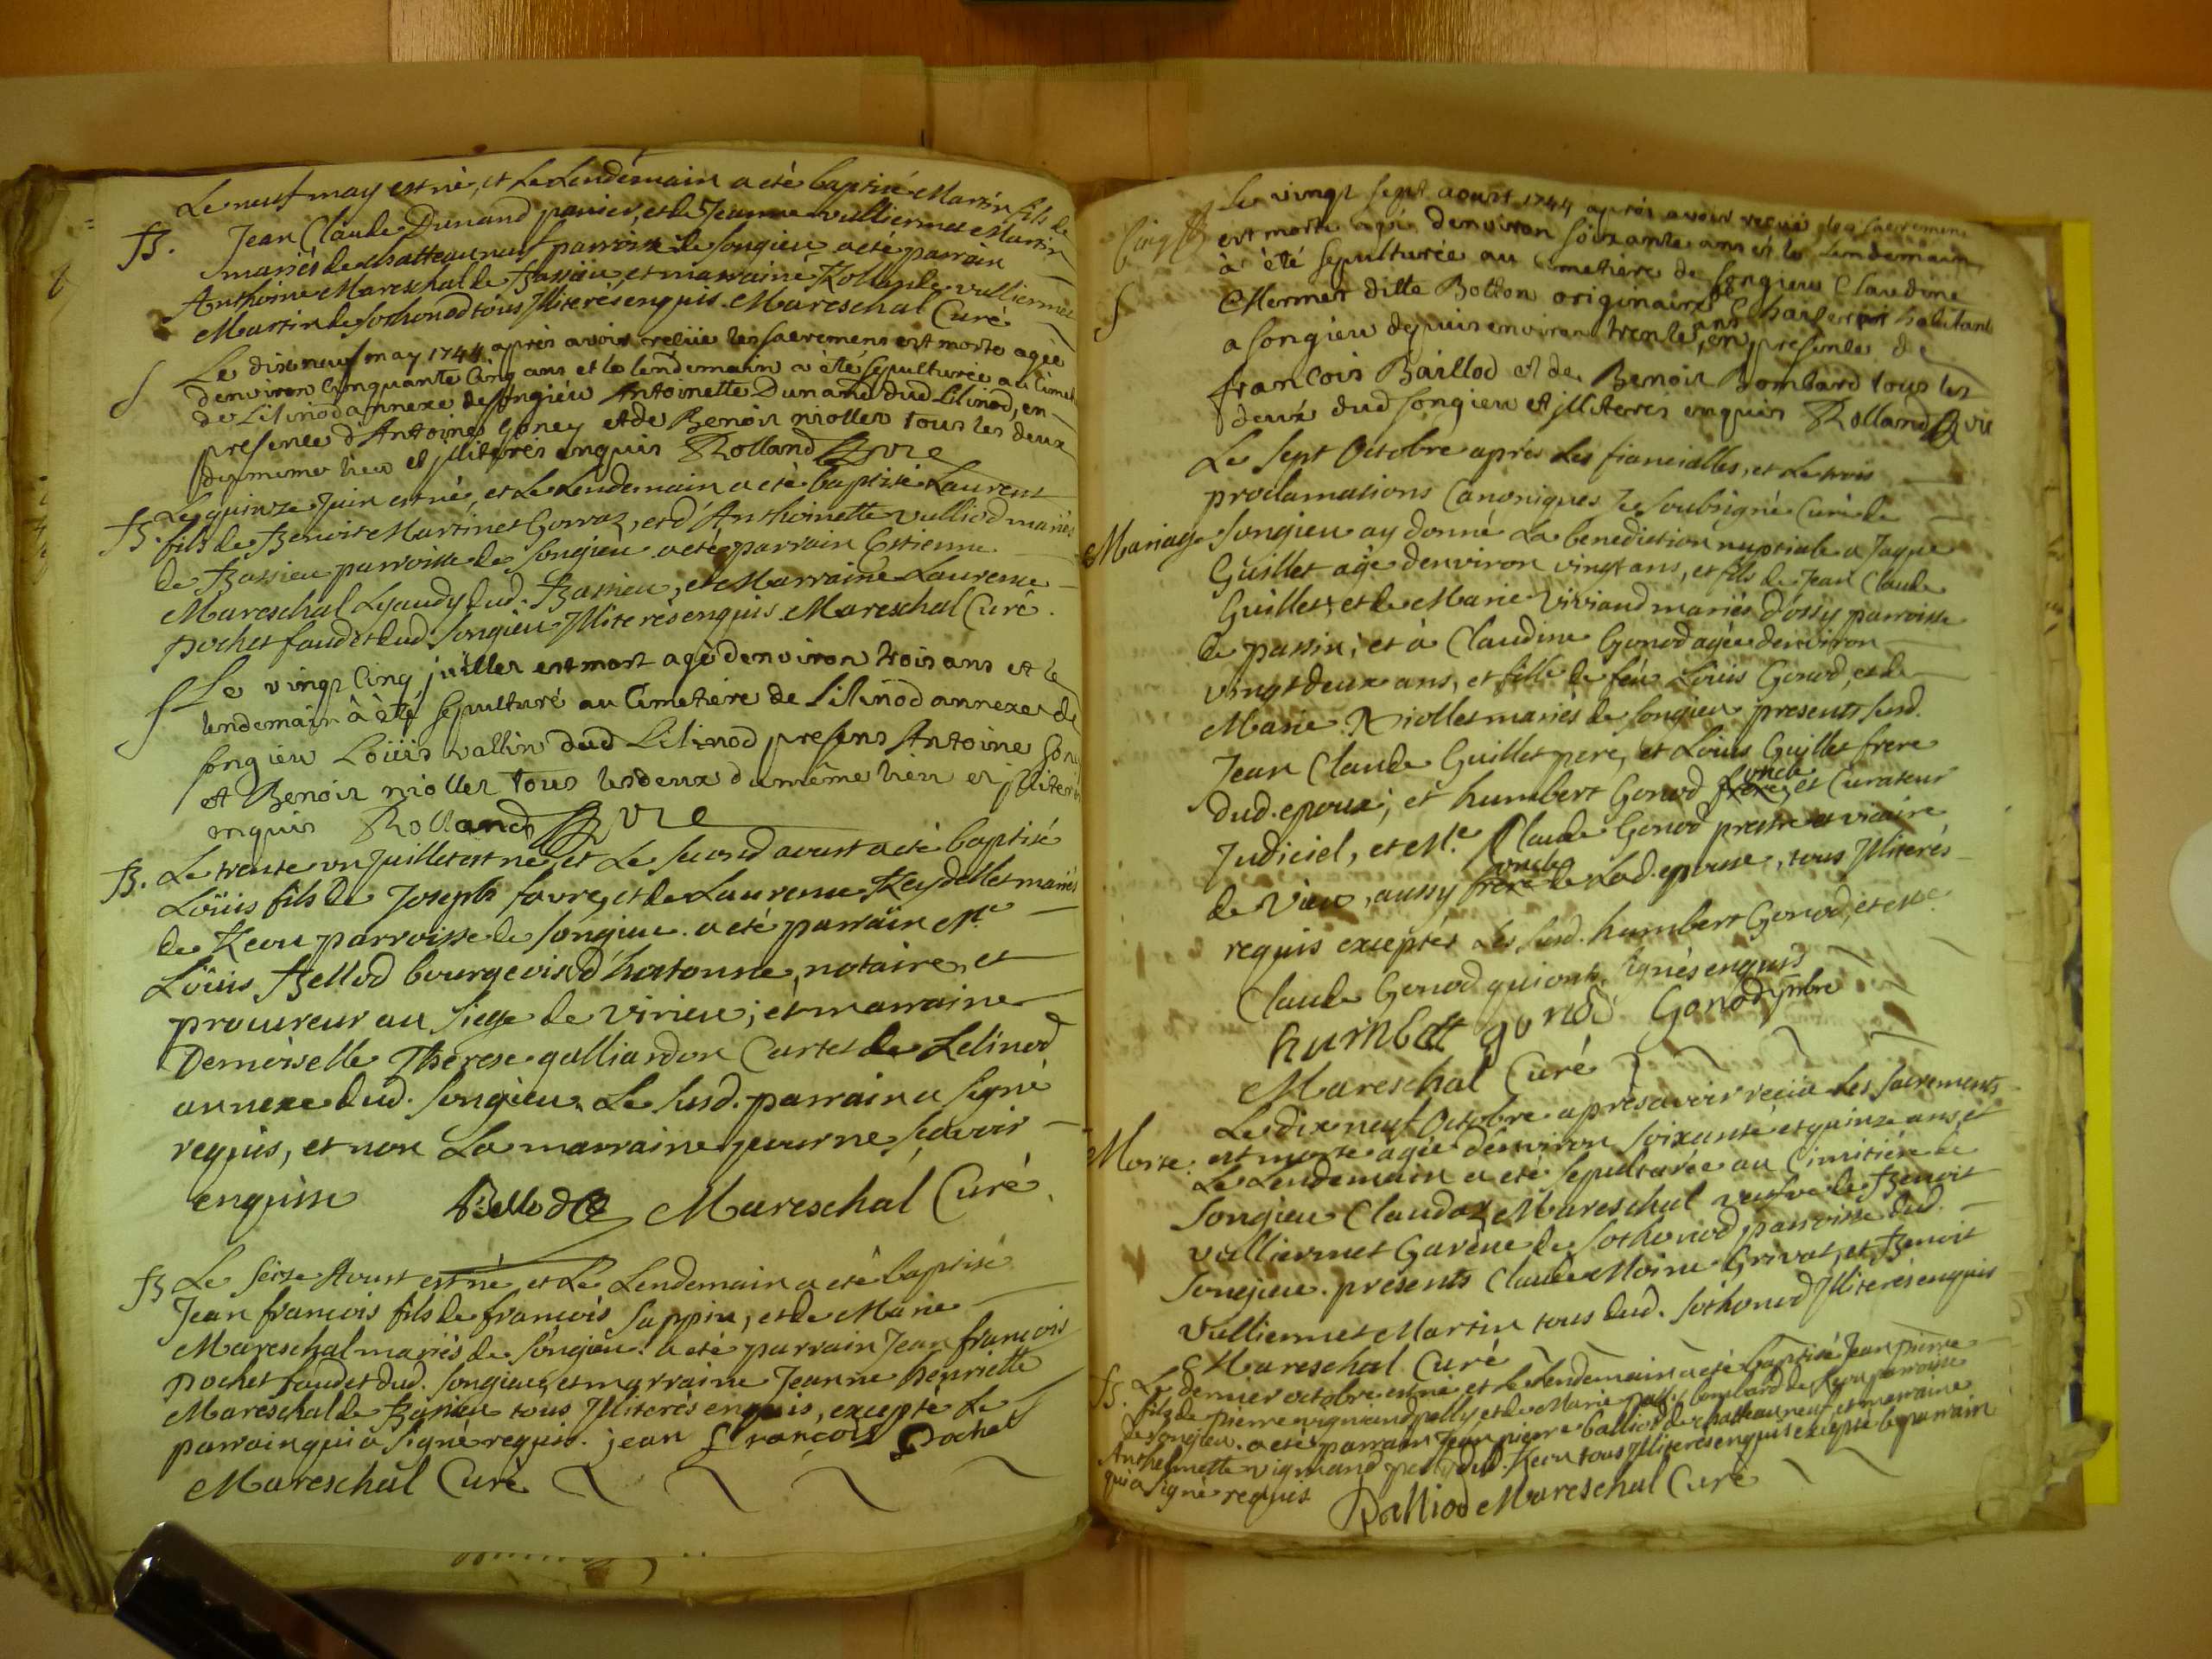 Le neuf may est né, et Le Lendemain a eté baptisé Martin fils de
B. Jean Claude Dunand panier, et de Jeanne vulliermet Martin
mariés de chatteauneuf parroisse de songieu, a eté parrain
Anthoine Mareschal de Bassieu, et marraine Rollande vulliermet
Martin de sothonod tous Illiterés enquis. Mareschal Curé
S Le dix neuf may 1744 après avoir recüe les sacremens est morte agée
denviron Cinquante Cinq ans et le lendemain à èté sepulturée au Cimet
de Lilinod annexe de songieu Antoinette Dunand dud Lilinod, en
presence d'Antoine Goney et de Benoit niollet tous les deux
du meme lieu et jlliterés enquis Rolland vre
B. Le quinze Juin est né, et Le Lendemain a eté baptisé Laurent
fils de Benoit Martinet Gorraz, et d'Anthoinette vulliod mariés
de Bassieu parroisse de songieu a eté parrain Estienne
Mareschal Lyaudy dud. Bassieu, et Marraine Laurence
pochet faudet dud. songieu Illiterés enquis. Mareschal Curé.
S Le vingt Cinq juillet est mort agé denviron trois ans et le
lendemain à èté sepulturé au Cimetiere de Lilinod annexe de
songieu Loüis vallin dud Lilinod presens Antoine Goney
et Benoit niollet tous les deux du même lieu et jlliterés
enquis Rolland vre
B. Le trente un Juillet est né, et Le second aoust a eté baptisé
Loüis fils de Joseph favre, et de Laurence Reydellet mariés
de Reou parroisse de songieu. a eté parrain Me
Loüis Bellod bourgeois d'hotonne, notaire, et
procureur au siege de virieu; et marraine
Demoiselle Therese galliardon Curtet de Lilinod
annexe dud. songieu. Le susd. parrain a signé
requis, et non La marraine pour ne scavoir
enquise Bellod Mareschal Curé.
B Le seize Aoust est né et Le Lendemain a eté baptisé
Jean francois fils de francois sappin, et de Marie
Mareschal mariés de songieu. a eté parrain Jean francois
pochet faudet dud. songieu, et marraine Jeanne henriette
Mareschal de Bassieu tous Illiterés enquis, excepté Le
parrain qui a signé requis. jean francois pochet
Mareschal Curé
Le vingt sept aoust 1744 après avoir recüe les sacremens
est morte agée denviron soixante ans et le lendemain
à èté sepulturée au Cimetiere de songieu Claudine
S Mermet ditte Bolton originaire de habitant
a songieu depuis environ trente ans, en presence de
francois Baillod et de Benoit Bombard tous les
deux dud songieu et jlliterés enquis Rolland vic
Le sept Octobre après Les fiancialles, et Le trois
proclamations Canoniques Je soubsigné Curé de
Mariage songieu ay donné La benediction nuptiale a Jaque
Guillet agé denviron vingt ans, et fils de Jean Claude
Guillet, et de Marie Viviand mariés d'ossy parroisse
de passin; et à Claudine Gonod agée denviron
vingt deux ans, et fille de feu Loüis Gonod, et de
Marie Niollet mariés de songieu presents susd.
Jean Claude Guillet pere, et Loüis Guillet frere
dud. epoux; et humbert Gonod frere oncle, et Curateur
Judiciel, et Me. Claude Gonod prestre et vicaire
de Vieu, aussy frere oncle de Lad. epouse, tous Illiterés
requis exceptés Les susd. humbert Gonod, et Me
Claude Gonod qui ont signés enquis
humbert gonod Gonod pbre
Mareschal Curé
Le dix neuf Octobre après avoir recüe Les sacrements
Morte. est morte agée denviron soixante et quinze ans, et
Le Lendemain a eté sepulturée au Cimitiére de
songieu Claudaz Mareschal veufve de Benoit
vulliermet Garéne de sothonod parroisse dud.
songieu. présents Claude Moine Grivat, et Benoit
Vulliermet Martin tous dud. sothonod Illiterés enquis
Mareschal Curé
B. Le dernier octobre est né et Le Lendemain a eté baptisé Jean pierre
fils de pierre vigniand polly, et de Marie bombard de Reou parroisse
de songieu. a eté parrain Jean pierre balliod de chatteauneuf, et marraine
Anthelmette vigniand polly dud. Reou tous Illiterés enquis excepté Le parrain
qui a signé requis Balliod Mareschal Curé